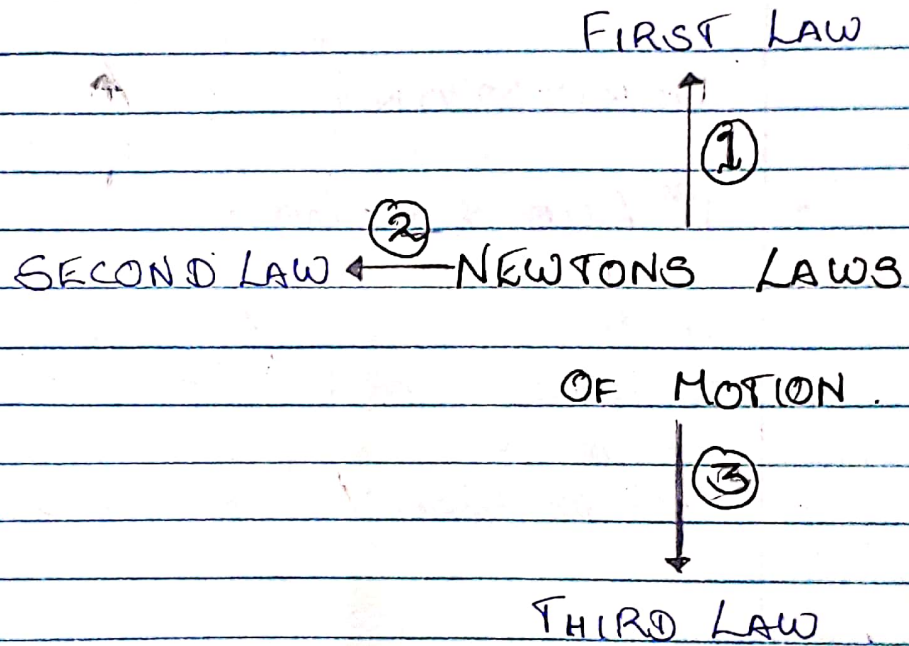 FIRST LAW
1
2
SECOND LAW NEWTONS LAWS
OF MOTION.
3
THIRD LAW